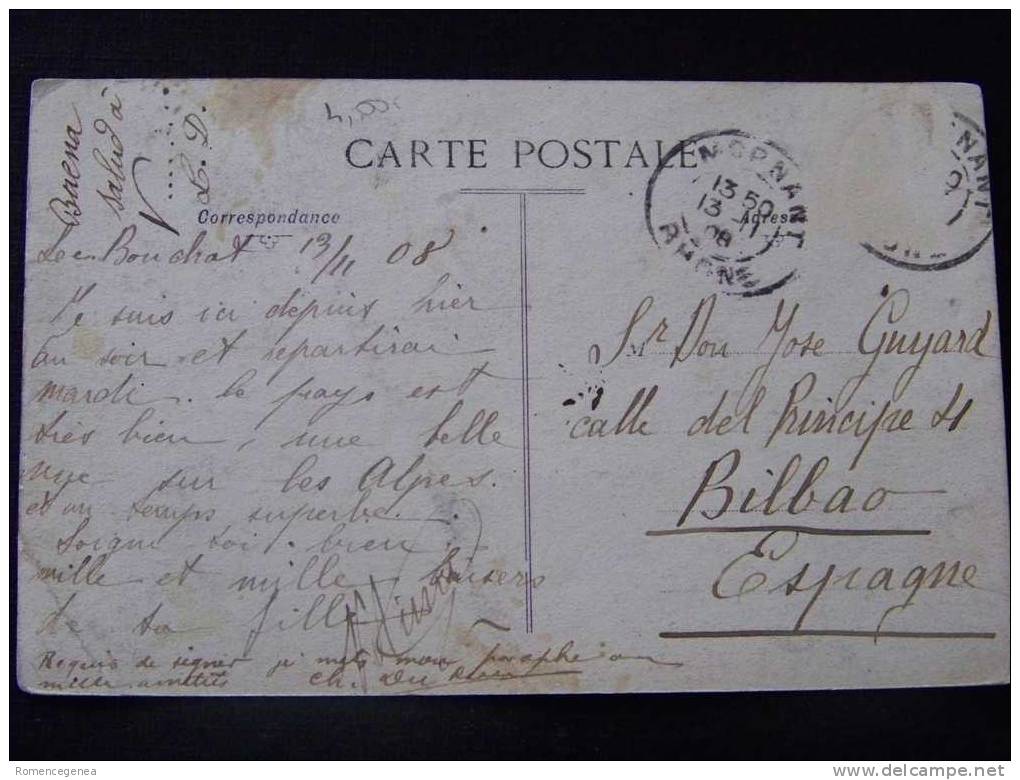 4,00
CARTE POSTALE
Baena
Salud a
V
L. D.
Correspondance
Adresse
MORNANT
13 50
13 -11
08
RHONE
NANT
Bouchat 13/11 08
Je suis ici depuis hier
au soir et repartirai
mardi. le pays est
très bien, une belle
vue sur les Alpes.
et un temps superbe.
Soigne toi bien.
mille et mille baisers
de ta fille
Requis de signer je mets mon paraphe ici
mille amitiés ch.
M
Sr Don Jose Guyard
calle del Principe 4
Bilbao
Espagne
Romencegenea
delcampe.net